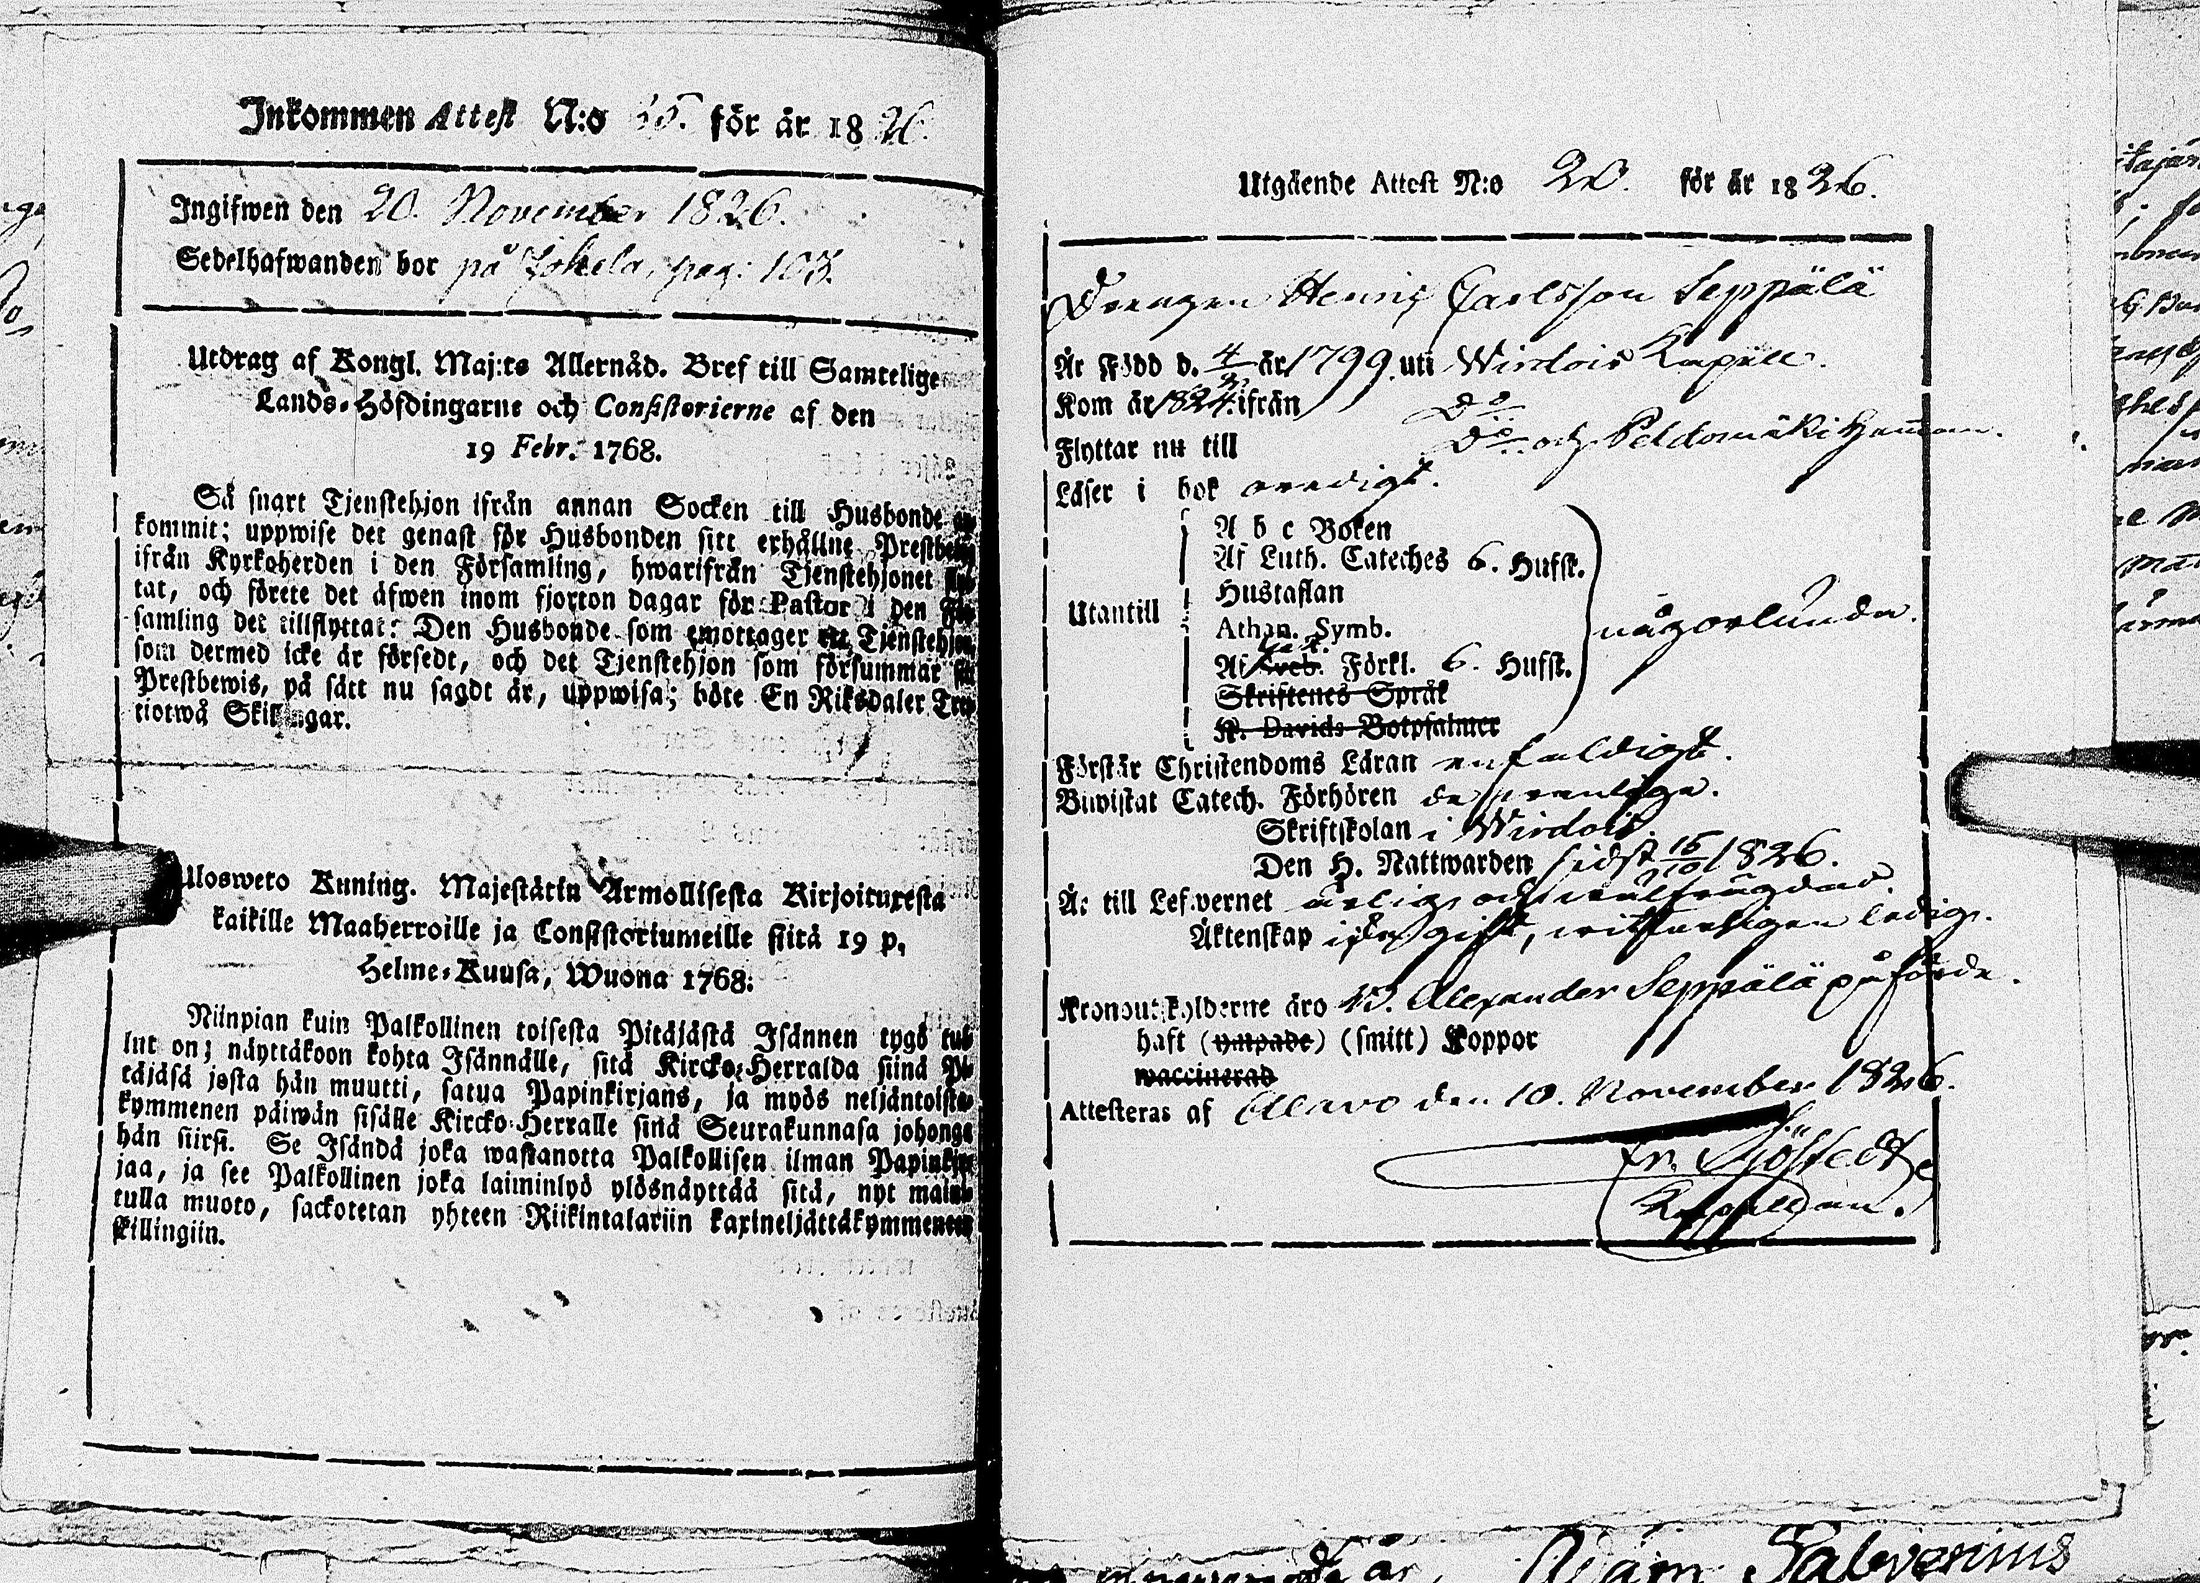 Inkommen Attest N:o 55. för år 1826.
Ingifwen den 20. November 1826.
Sedelhafwanden bor på Jokela, pag: 103.
Utdrag af Kongl. Maj:ts Allernåd. Bref till Samtelige
Lands-Höfdingarne och Consistorierne af den
19 Febr. 1768.
Så snart Tjenstehjon ifrån annan Socken till Husbonde
kommit; uppwise det genast för Husbonden sitt erhållne
ifrån Kyrkoherden i den Församling, hwarifrån Tjenstehjonet
tat, och förete det äfwen inom fjorton dagar för Pastor i den
samling det tillflyttat: Den Husbonde som emottager ett Tjenstehjon
som dermed icke är försedt, och det Tjenstehjon som försummar
Prestbewis, på sätt nu sagdt är, uppwisa; böte En Riksdaler
tiotwå Skillingar.
Ulosweto Kuning. Majestätin Armollisesta Kirjoituxesta
kaikille Maaherroille ja Consistoriumeille siitä 19 p.
Helme-Kuusa, Wuona 1768:
Niinpian kuin Palkollinen toisesta Pitäjästä Isännen tygö tul-
lut on; näyttäkoon kohta Isännälle, sitä Kircko-Herralda siinä Pi-
täjäsä josta hän muutti, satua Papinkirjans, ja myös neljäntoista-
kymmenen päiwän sisälle Kircko-Herralle siinä Seurakunnasa johonga
hän siirsi. Se Isändä joka wastanotta Palkollisen ilman Papinkir-
jaa, ja see Palkollinen joka laiminlyö ylösnäyttää sitä, nyt maini-
tulla muoto, sackotetan yhteen Riikintalariin kaxineljättäkymmeneen
killingiin.
Utgående Attest N:o 20. för år 1826.
Drengen Henric Carlsson Seppälä
Är Född d. 4/2 år 1799. uti Wirdois Kapell.
Kom år 1824. ifrån Do
Flyttar nu till Do och Peldomäki Hemman.
Läser i bok oredigt.
A b c Boken
Af Luth. Cateches 6. Hufst.
Hustaflan
Utantill någorlunda.
Athan. Symb.
Af Sveb. Förkl. 6. Hufst.
Skriftenes Språk
K. Davids Botpsalmer
Förstår Christendoms Läran enfaldigt.
Biwistat Catech. Förhören
Skriftskolan i Wirdois
Den H. Nattwarden sidst 16/10 1826.
Är till Lefwernet ärlig och wälfrägdad.
Äktenskap ej gift, witterligen ledig.
Kronoutskylderne äro Alexander Seppälä påförde.
haft (ympade) (smitt) Koppor
waccinerad
Attesteras af Alavo den 10. November 1826.
Fr. Sjöstedt
Kapellan.